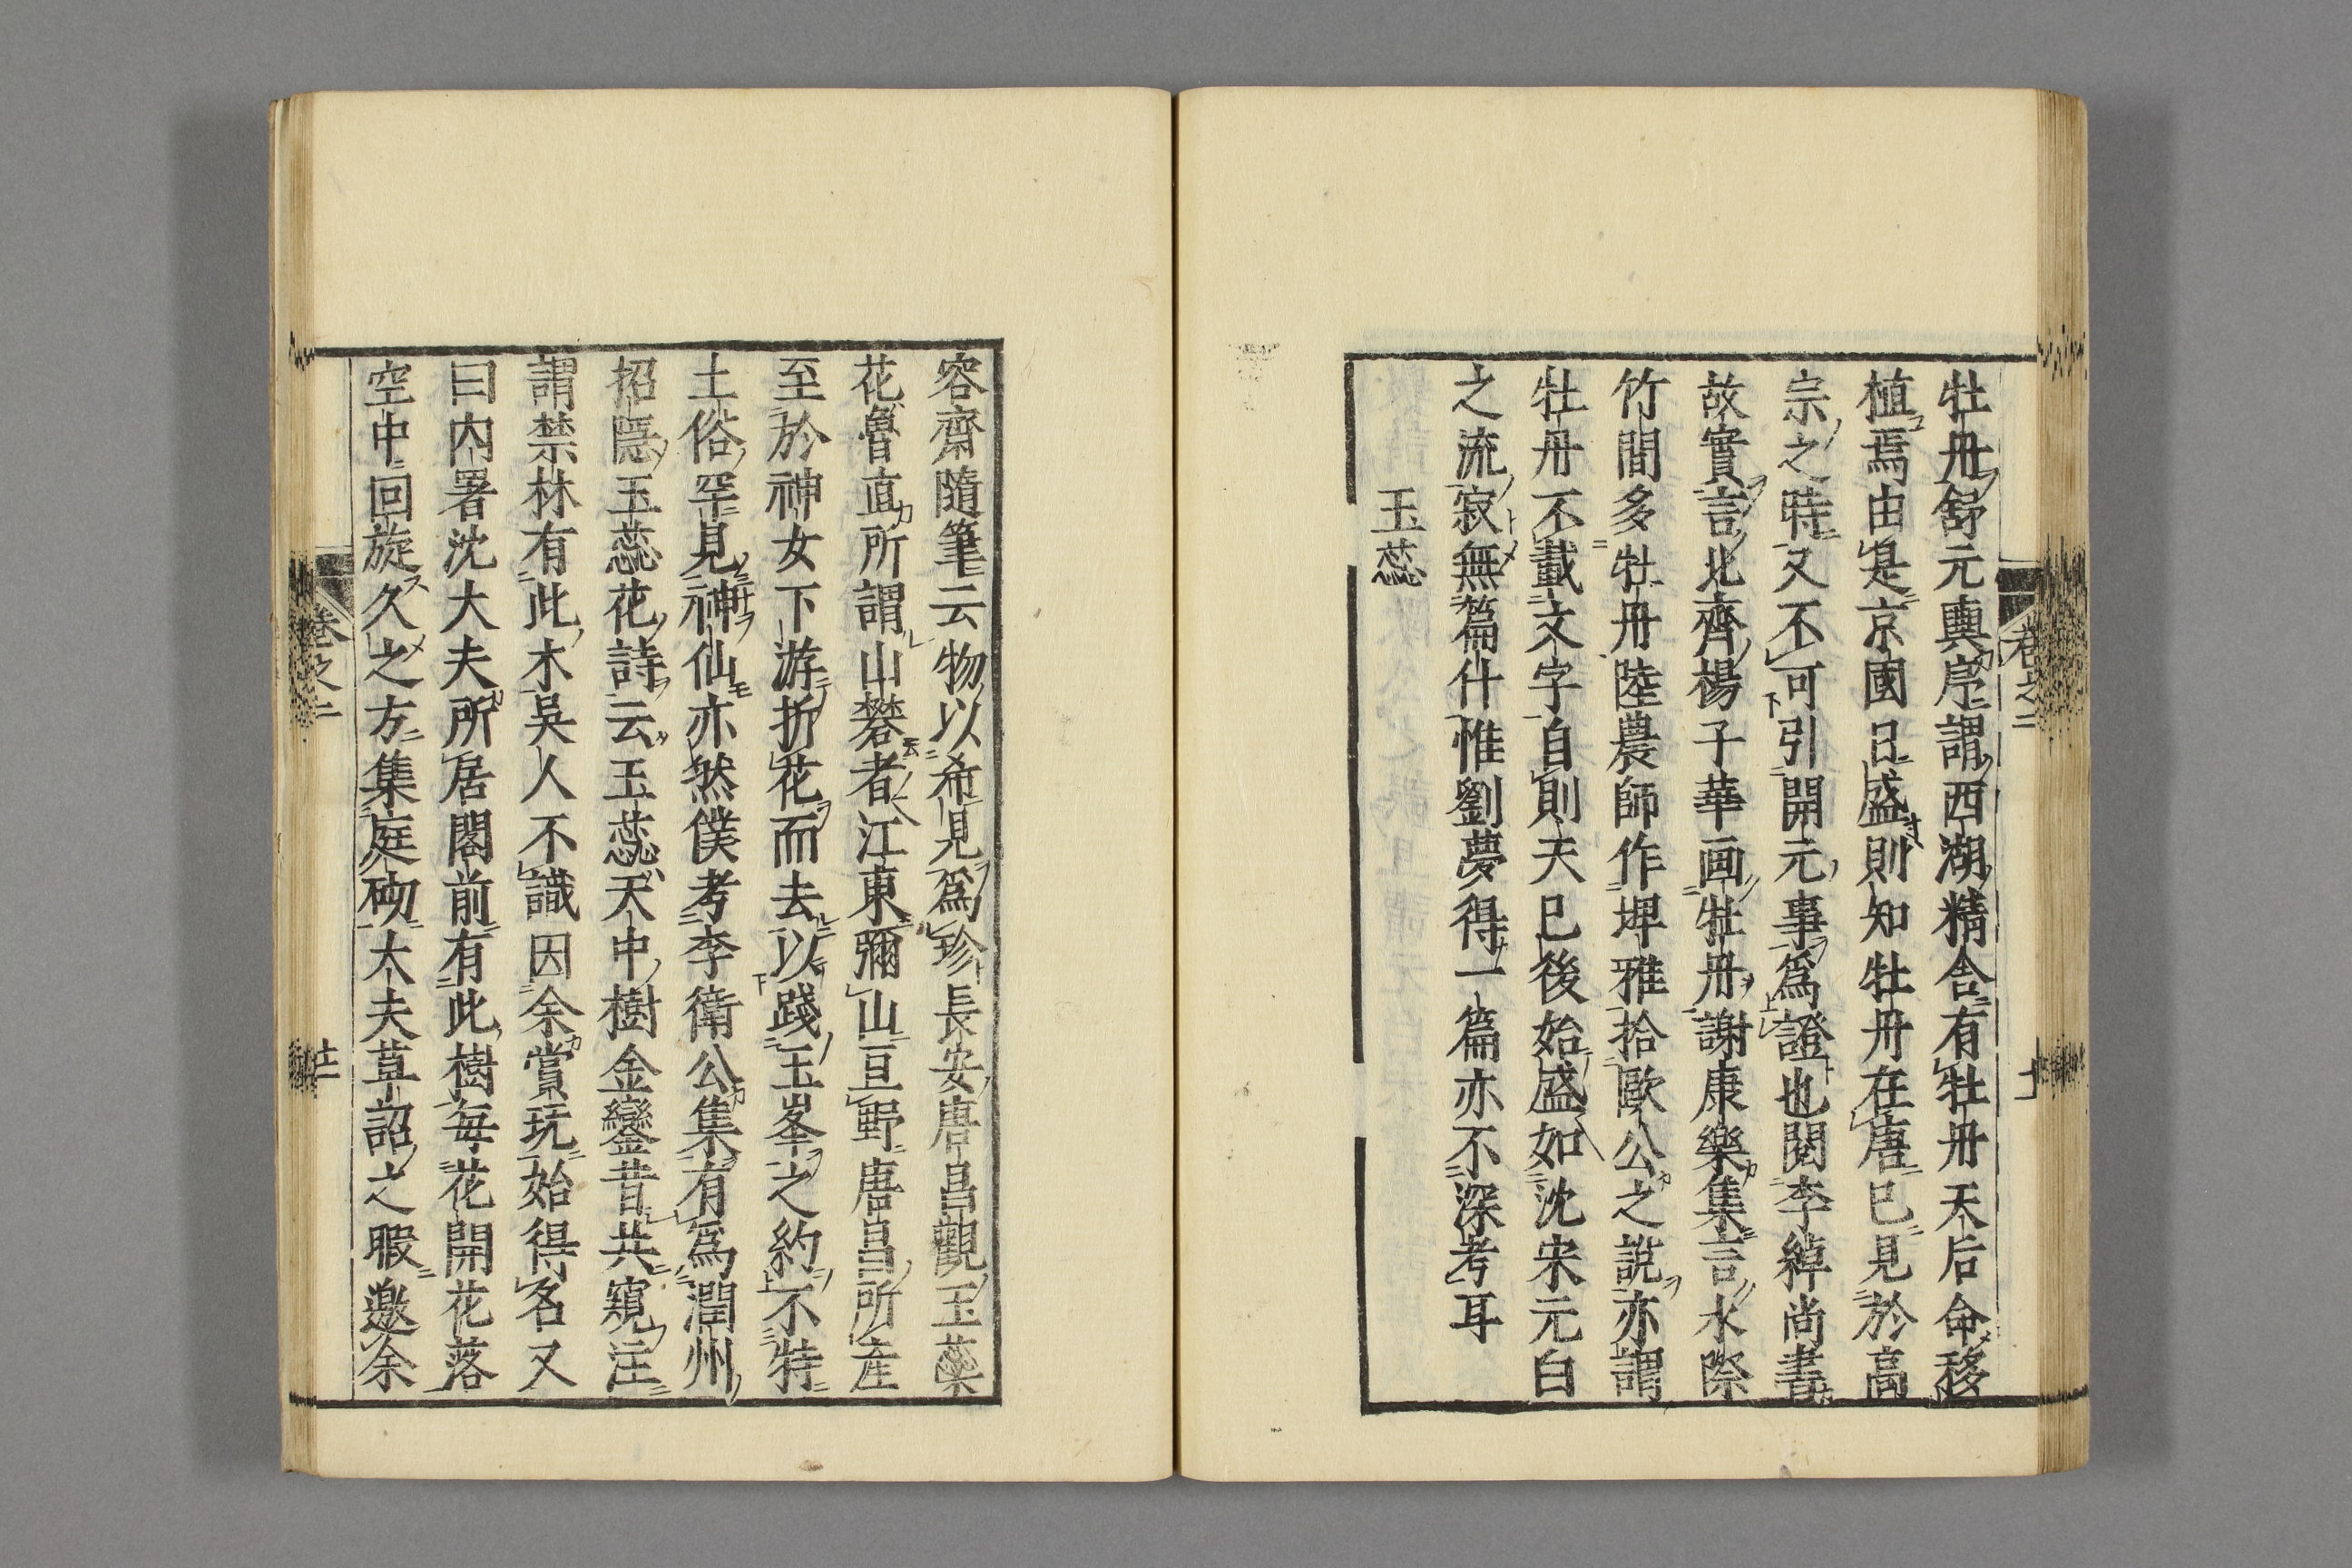 牡丹舒元輿序謂西湖精舍有牡丹天后命移
植焉由是京國日盛則知牡丹在唐已見於高
宗之時又不可引開元事爲證也閱李綽尚書
故實言北齊楊子華画牡丹謝康樂集言水際
竹間多牡丹陸農師作埤雅拾歐公之說亦謂
牡丹不載文字自則天已後始盛如沈宋元白
之流寂無篇什惟劉夢得一篇亦不深考耳
玉蕊
容齋隨筆云物以希見爲珍長安唐昌觀玉蘂
花魯直所謂山礬者江東彌山亘野唐昌所產
至於神女下游折花而去以踐玉峯之約不特
土俗罕見神仙亦然僕考李衛公集有爲潤州
招隱玉蕊花詩云玉蕊天中樹金鑾昔共窺注
謂禁林有此木吳人不識因余賞玩始得名又
曰内署沈大夫所居閣前有此樹每花開花落
空中回旋久之方集庭砌大夫草詔之暇邀余
卷之二